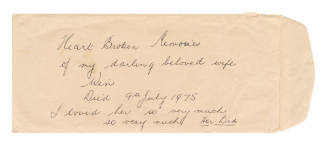 Heart Broken Memories
of my darling beloved wife
Win
Died 9th July 1975
I loved her so very much
so very much Her Dad